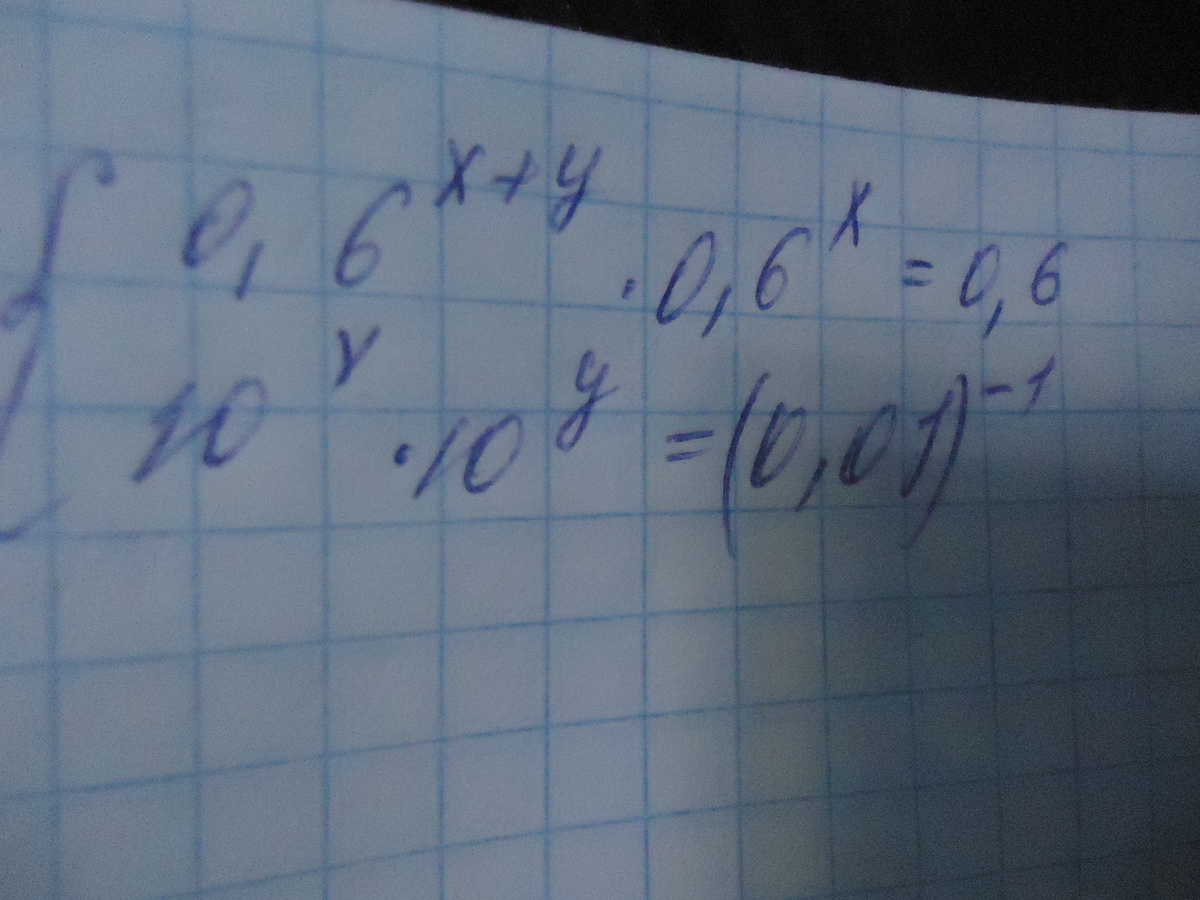 { 0,6^{x+y} · 0,6^x = 0,6
10^x · 10^y = (0,01)^{-1}